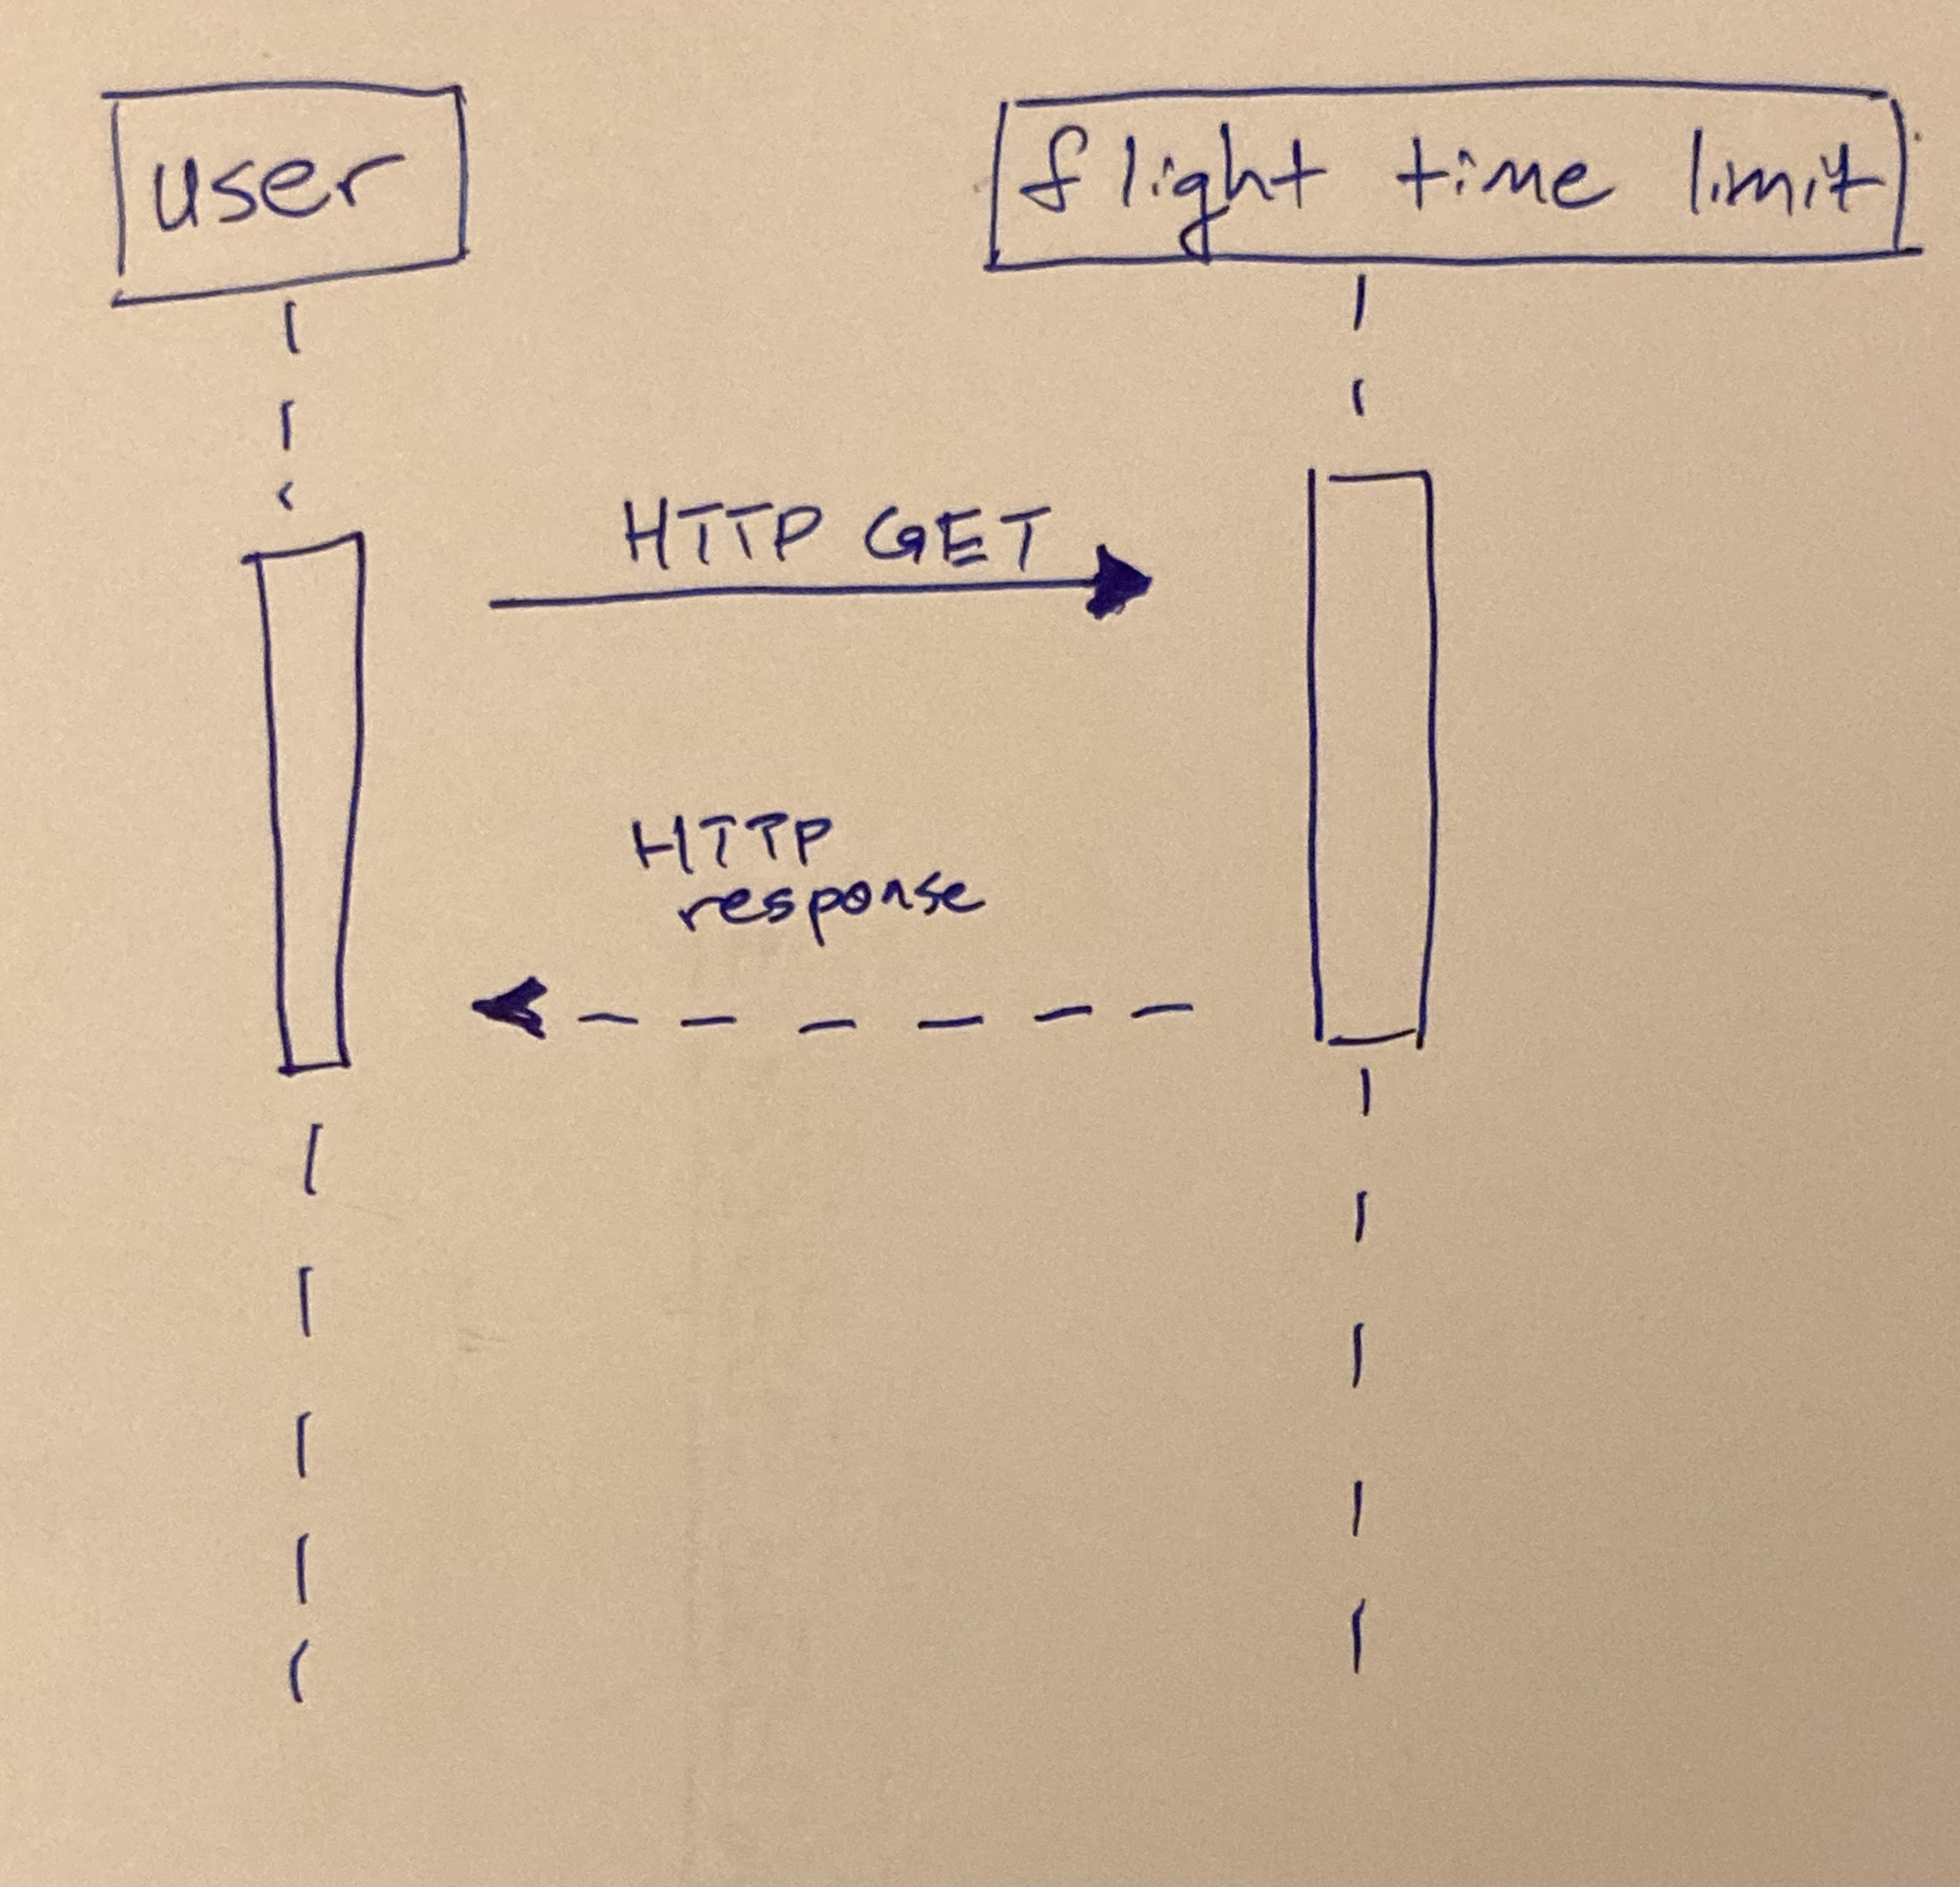 user
flight time limit
HTTP GET
HTTP
response